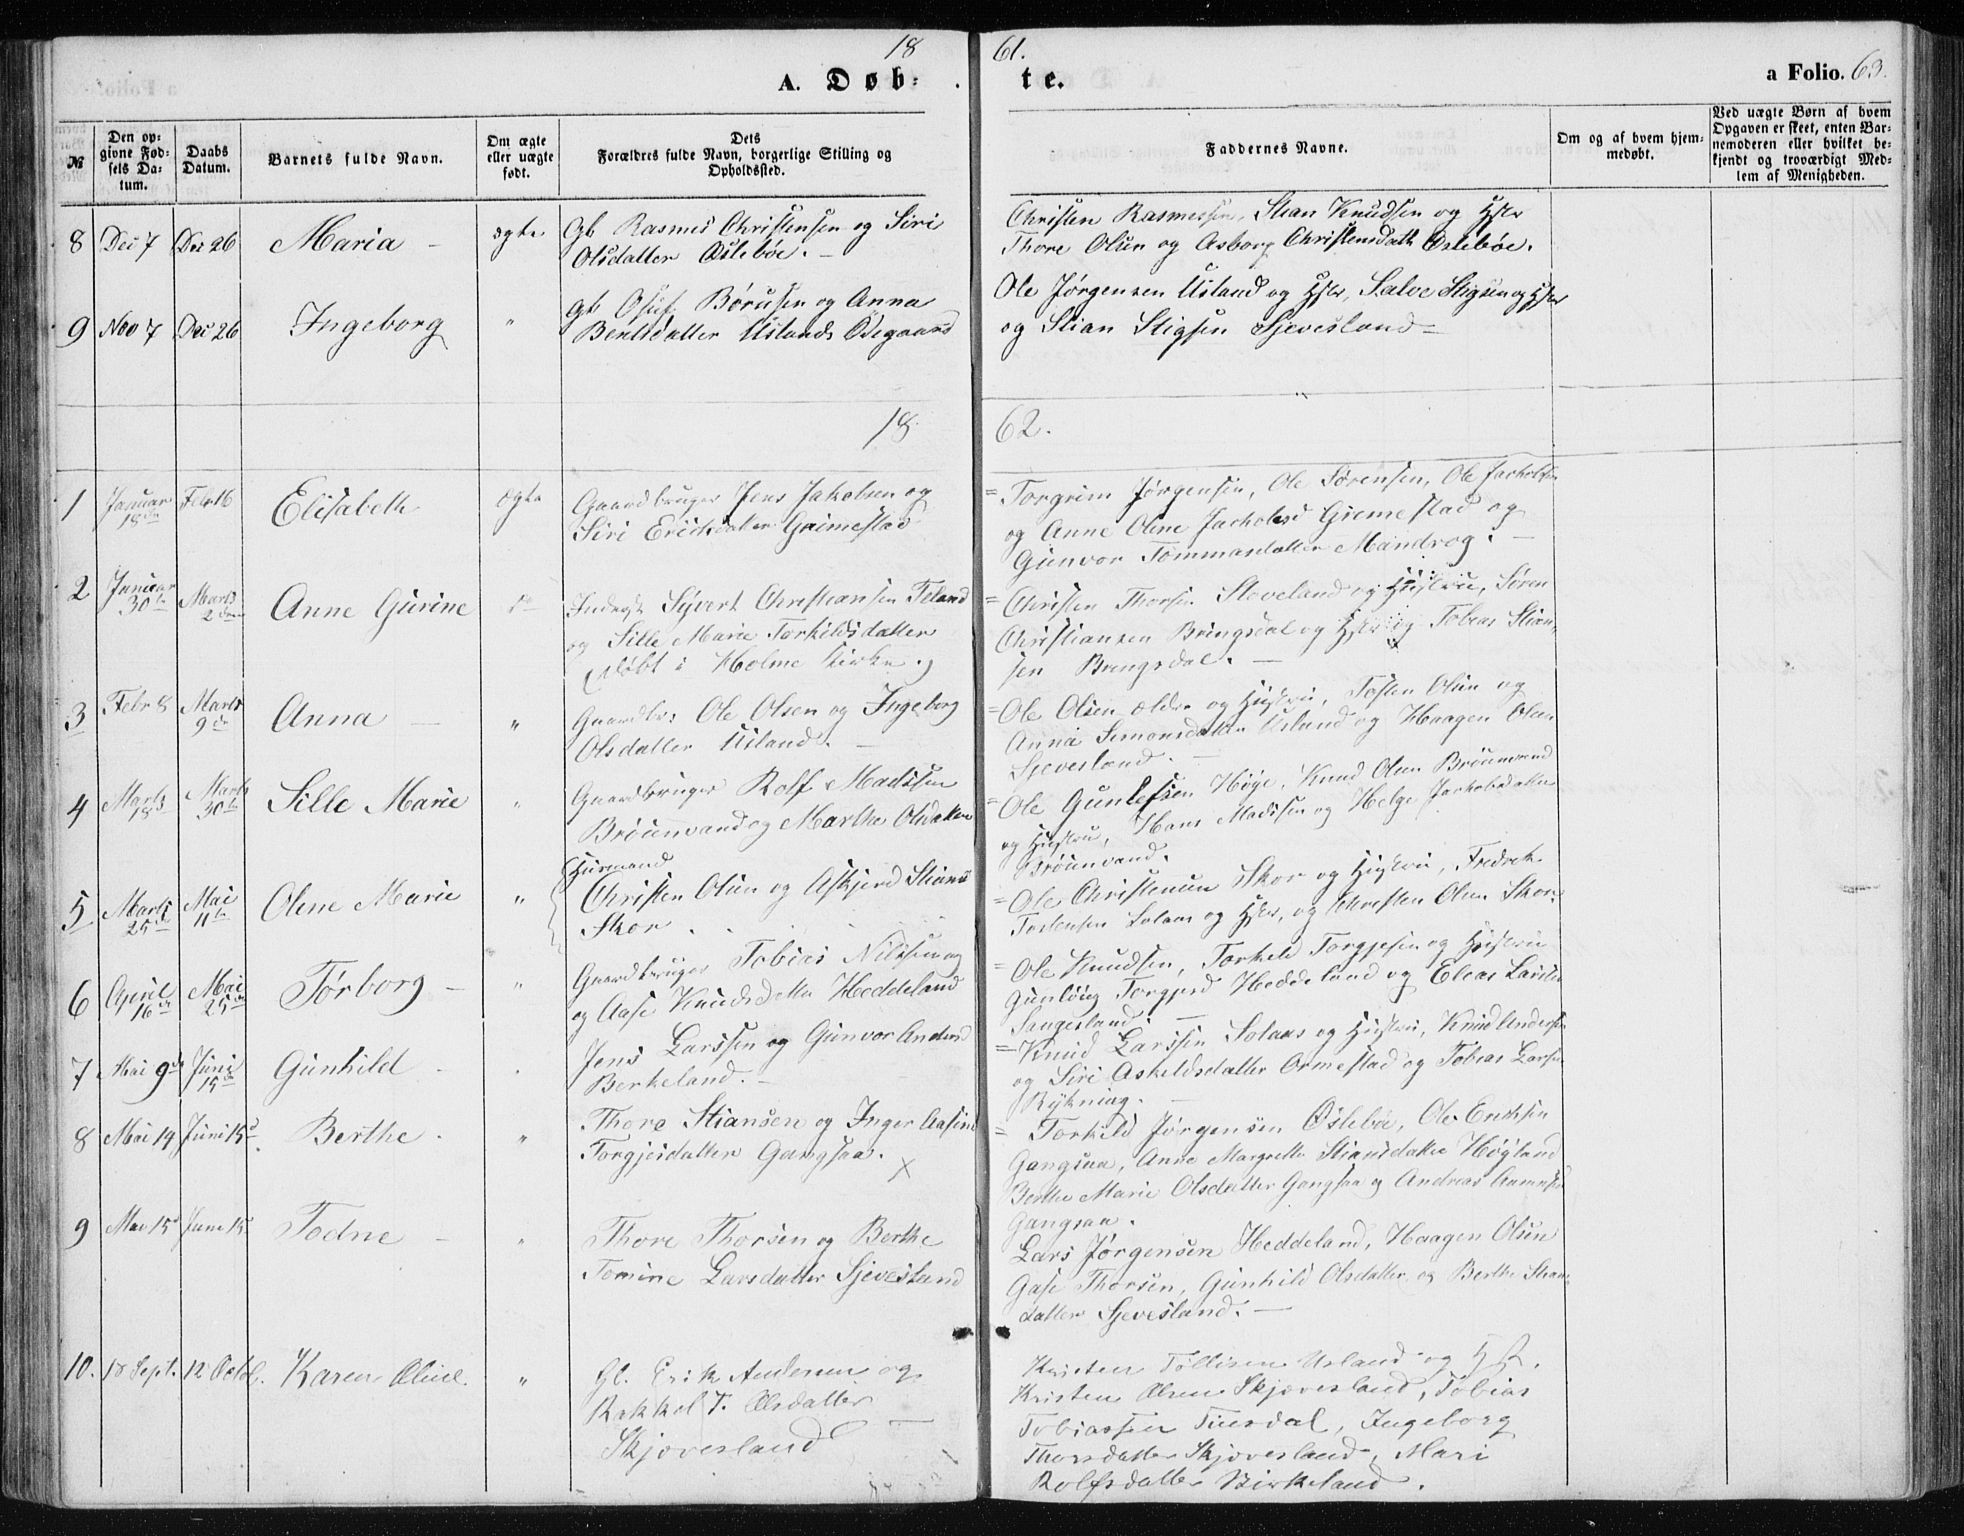 18 61.
A. Døb: te. a Folio. 63.
№
Den opgivne Fødsels Datum.
Daabs Datum.
Barnets fulde Navn.
Om ægte eller uægte født.
Dets Forældres fulde Navn, borgerlige Stilling og Opholdssted.
Faddernes Navne.
Om og af hvem hjemmedøbt.
Ved uægte Børn af hvem Opgaven er skeet, enten Barnemoderen eller hvilket bekjendt og troværdigt Medlem af Menigheden.
8 Dec 7 Dec 26 Maria – ægte Gb Rasmus Christensen og Siri
Olsdatter Øslebøe. –
Christen Rasmussen, Stian Knudsen og Hstr
Thore Olsen og Asborg Christensdatt Øslebøe.
9 Nov 7 Dec 26 Ingeborg " Gb Osuf Børusen og Anna
Bentsdatter Uslands Ødegaard
Ole Jørgensen Usland og Hstr, Salve Stigsen og Hstr
og Stian Stigsen Sjevesland –
18 62.
1 Januar 18de Febr 16 Elisabeth ægte Gaardbruger Jens Jakobsen og
Siri Ericksdatter Grimestad
= Torgrim Jørgensen, Ole Sørensen, Ole Jacobsen
og Anne Oline Jachobsd Grimestad og
Gunvor Tommasdatter Mandrog. –
2 Januar 30te Marts 2den Anne Gurine Syvert Christiansen Feland
og Sille Marie Torkildsdatter
(døbt i Holme Kirke.)
= Christen Thorsen Sloveland og Hustru, Søren
Christiansen Bringsdal og Hstr og Tobias Stian-
sen Bringsdal. –
3 Febr 8 Marts 9de Anna – " Gaardbr: Ole Olsen og Ingeborg
Olsdatter Usland. –
= Ole Olsen ældre og Hustru, Tosten Olsen og
Anna Simonsdatter Usland og Haagen Olsen
Sjevesland. –
4 Marts 18de Marts 30te Sille Marie " Gaardbruger Rolf Madssen
Brøunvand og Marthe Olsdatter
= Ole Gunlefsen Høye, Knud Olsen Brøunvand
og Hustru, Hans Madssen og Helge Jachobsdatter
Brøunvand.
5 Marts 25de Mai 11te Olene Marie " Huusmand
Christen Olsen og Askjerd Stians
Skor
= Ole Christensen Skor og Hustru, Fredrek
Tostensen Solaas og Hstr, og Christen Olsen Skor.
6 April 16de Mai 25de Tørborg – " Gaardbruger Tobias Nilssen og
og Aase Knudsdatter Heddeland
= Ole Knudsen, Torkeld Torgjesen og Hustru
Gunløug Torgjersd Heddeland og Elias Larsen
Sangesland. –
7 Mai 9de Juni 15de Gunhild Jens Larssen og Gunvor Andersd
Berkeland. –
= Knud Larssen Solaas og Hustru, Knud Andersen
og Siri Askeldsdatter Ormestad og Tobias Larsen
Rykning. –
8 Mai 19 Juni 15d Berthe " Thore Stiansen og Inger Aasine
Torgjesdatter Gangsaa. X
= Torkild Jørgensen Øslebø, Ole Eriksen
Gangsaa, Anne Margrethe Stiansdatter Høgland
Berthe Marie Olsdatter Gangsaa og Andreas
Gangsaa.
9 Mai 15d Juni 15d Todne – " Thore Thorsen og Berthe
Tomine Larsdatter Sjevesland
Lars Jørgensen Heddeland, Haagen Olsen
Thorsen, Gunhild Olsdatter og Berthe Stians-
datter Sjevesland. –
10. 18 Sept. 12 Octob. Karen Oline. " Gb. Erik Andersen og
Rakkel T. Olsdatter
Skjøvesland
Kristen Tollisen Usland og Hst.
Kristen Olsen Skjøvesland, Tobias
Tobiassen Tinsdal, Ingeborg
Thorsdatter Skjøvesland, Mari
Rolfsdatter Birkeland.